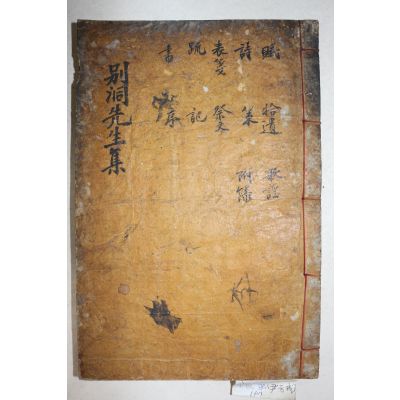 別洞先生集
賦 拾遺 歌謠
詩 策 附錄
表箋 祭文
疏 記
書 序